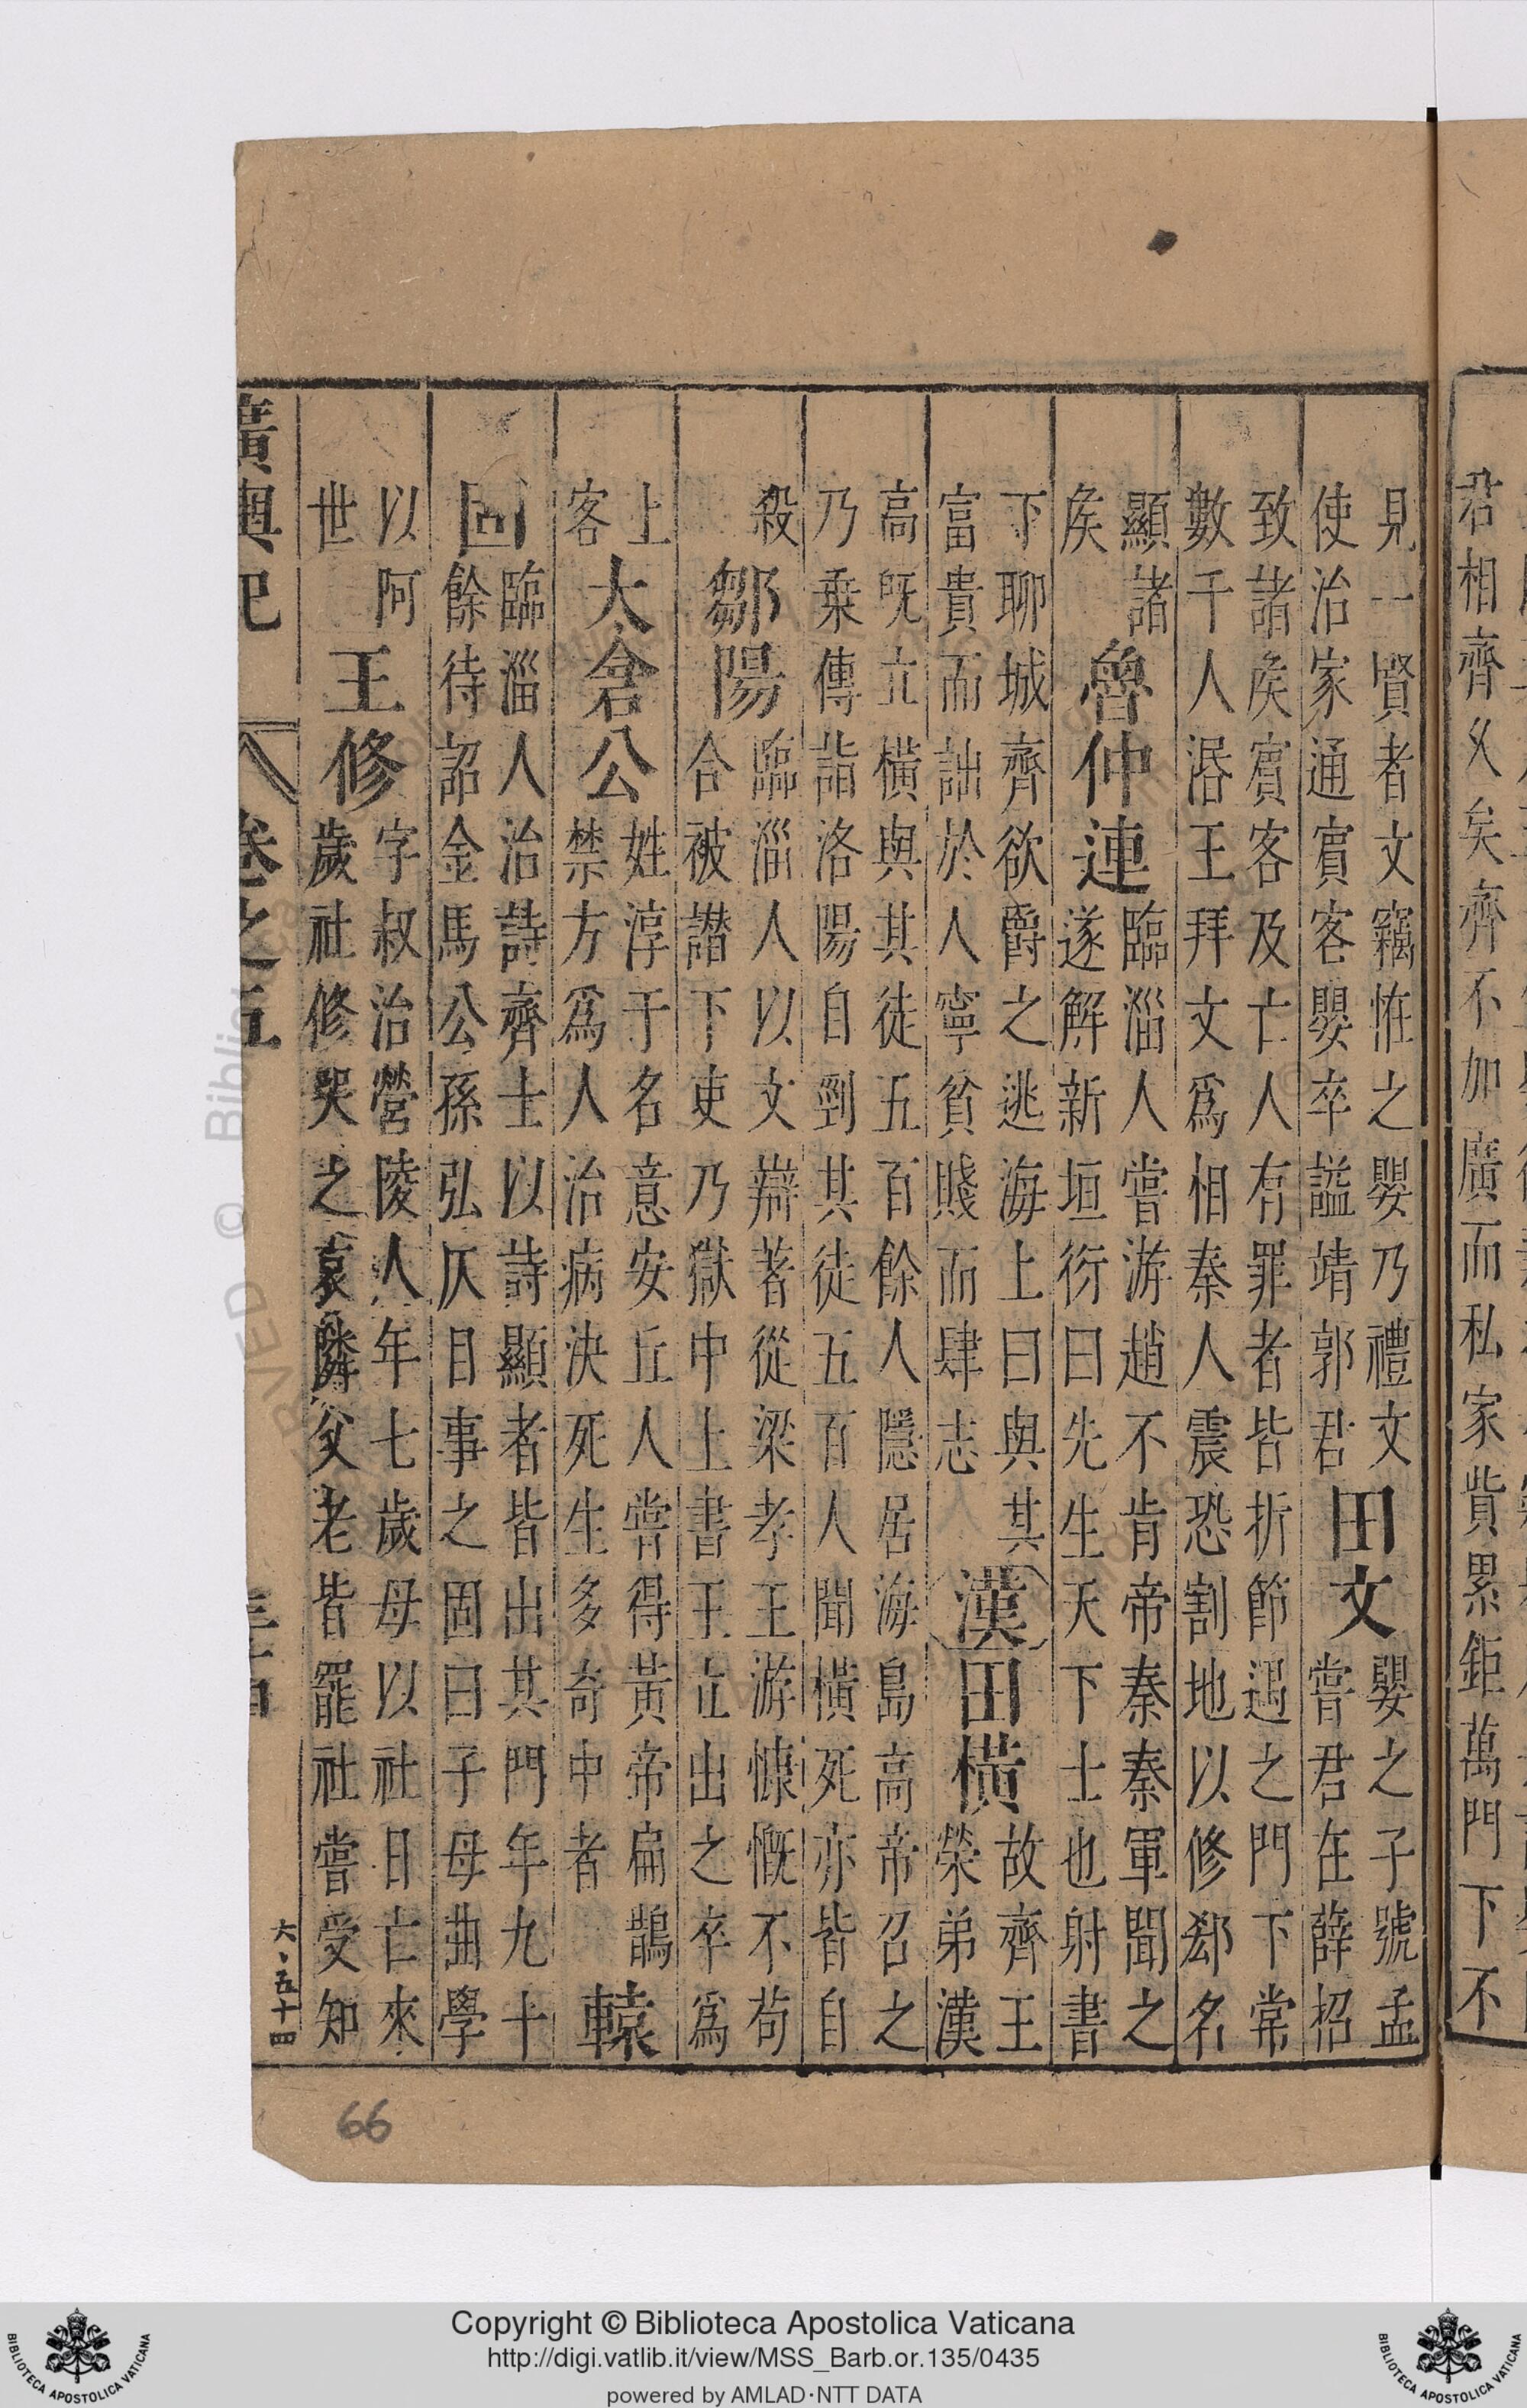 君相齊乆矣齊不加廣而私家貲累鉅萬門下不
見一賢者文竊恠之嬰乃禮文
使治家通賓客嬰卒謚靖郭君
田文
嬰之子號孟
嘗君在薛招
致諸侯賓客及亡人有罪者皆折節遇之門下常
數千人湣王拜文爲相秦人震恐割地以修郄名
顯諸
侯
魯仲連
臨淄人嘗游趙不肯帝秦秦軍聞之
遂解新垣衍曰先生天下士也射書
下聊城齊欲爵之逃海上曰與其
富貴而詘於人寧貧賤而肆志
漢
田橫
故齊王
榮弟漢
高旣立橫與其徒五百餘人隱居海島高帝召之
乃乗傳詣洛陽自剄其徒五百人聞橫死亦皆自
殺
鄒陽
臨淄人以文辯著從梁孝王游慷慨不苟
合被譖下吏乃獄中上書王立出之卒爲
上
客
太倉公
姓淳于名意安丘人嘗得黃帝扁鵲
禁方爲人治病決死生多奇中者
轅
固
臨淄人治詩齊士以詩顯者皆出其門年九十
餘待詔金馬公孫弘仄目事之固曰子母曲學
以阿
世
王修
字叔治營陵人年七歲母以社日亡來
歲社修哭之哀隣父老皆罷社嘗受知
廣輿記 卷之五
大、五十四
66
Copyright © Biblioteca Apostolica Vaticana
http://digi.vatlib.it/view/MSS_Barb.or.135/0435
powered by AMLAD·NTT DATA
BIBLIOTECA APOSTOLICA VATICANA
BIBLIOTECA APOSTOLICA VATICANA